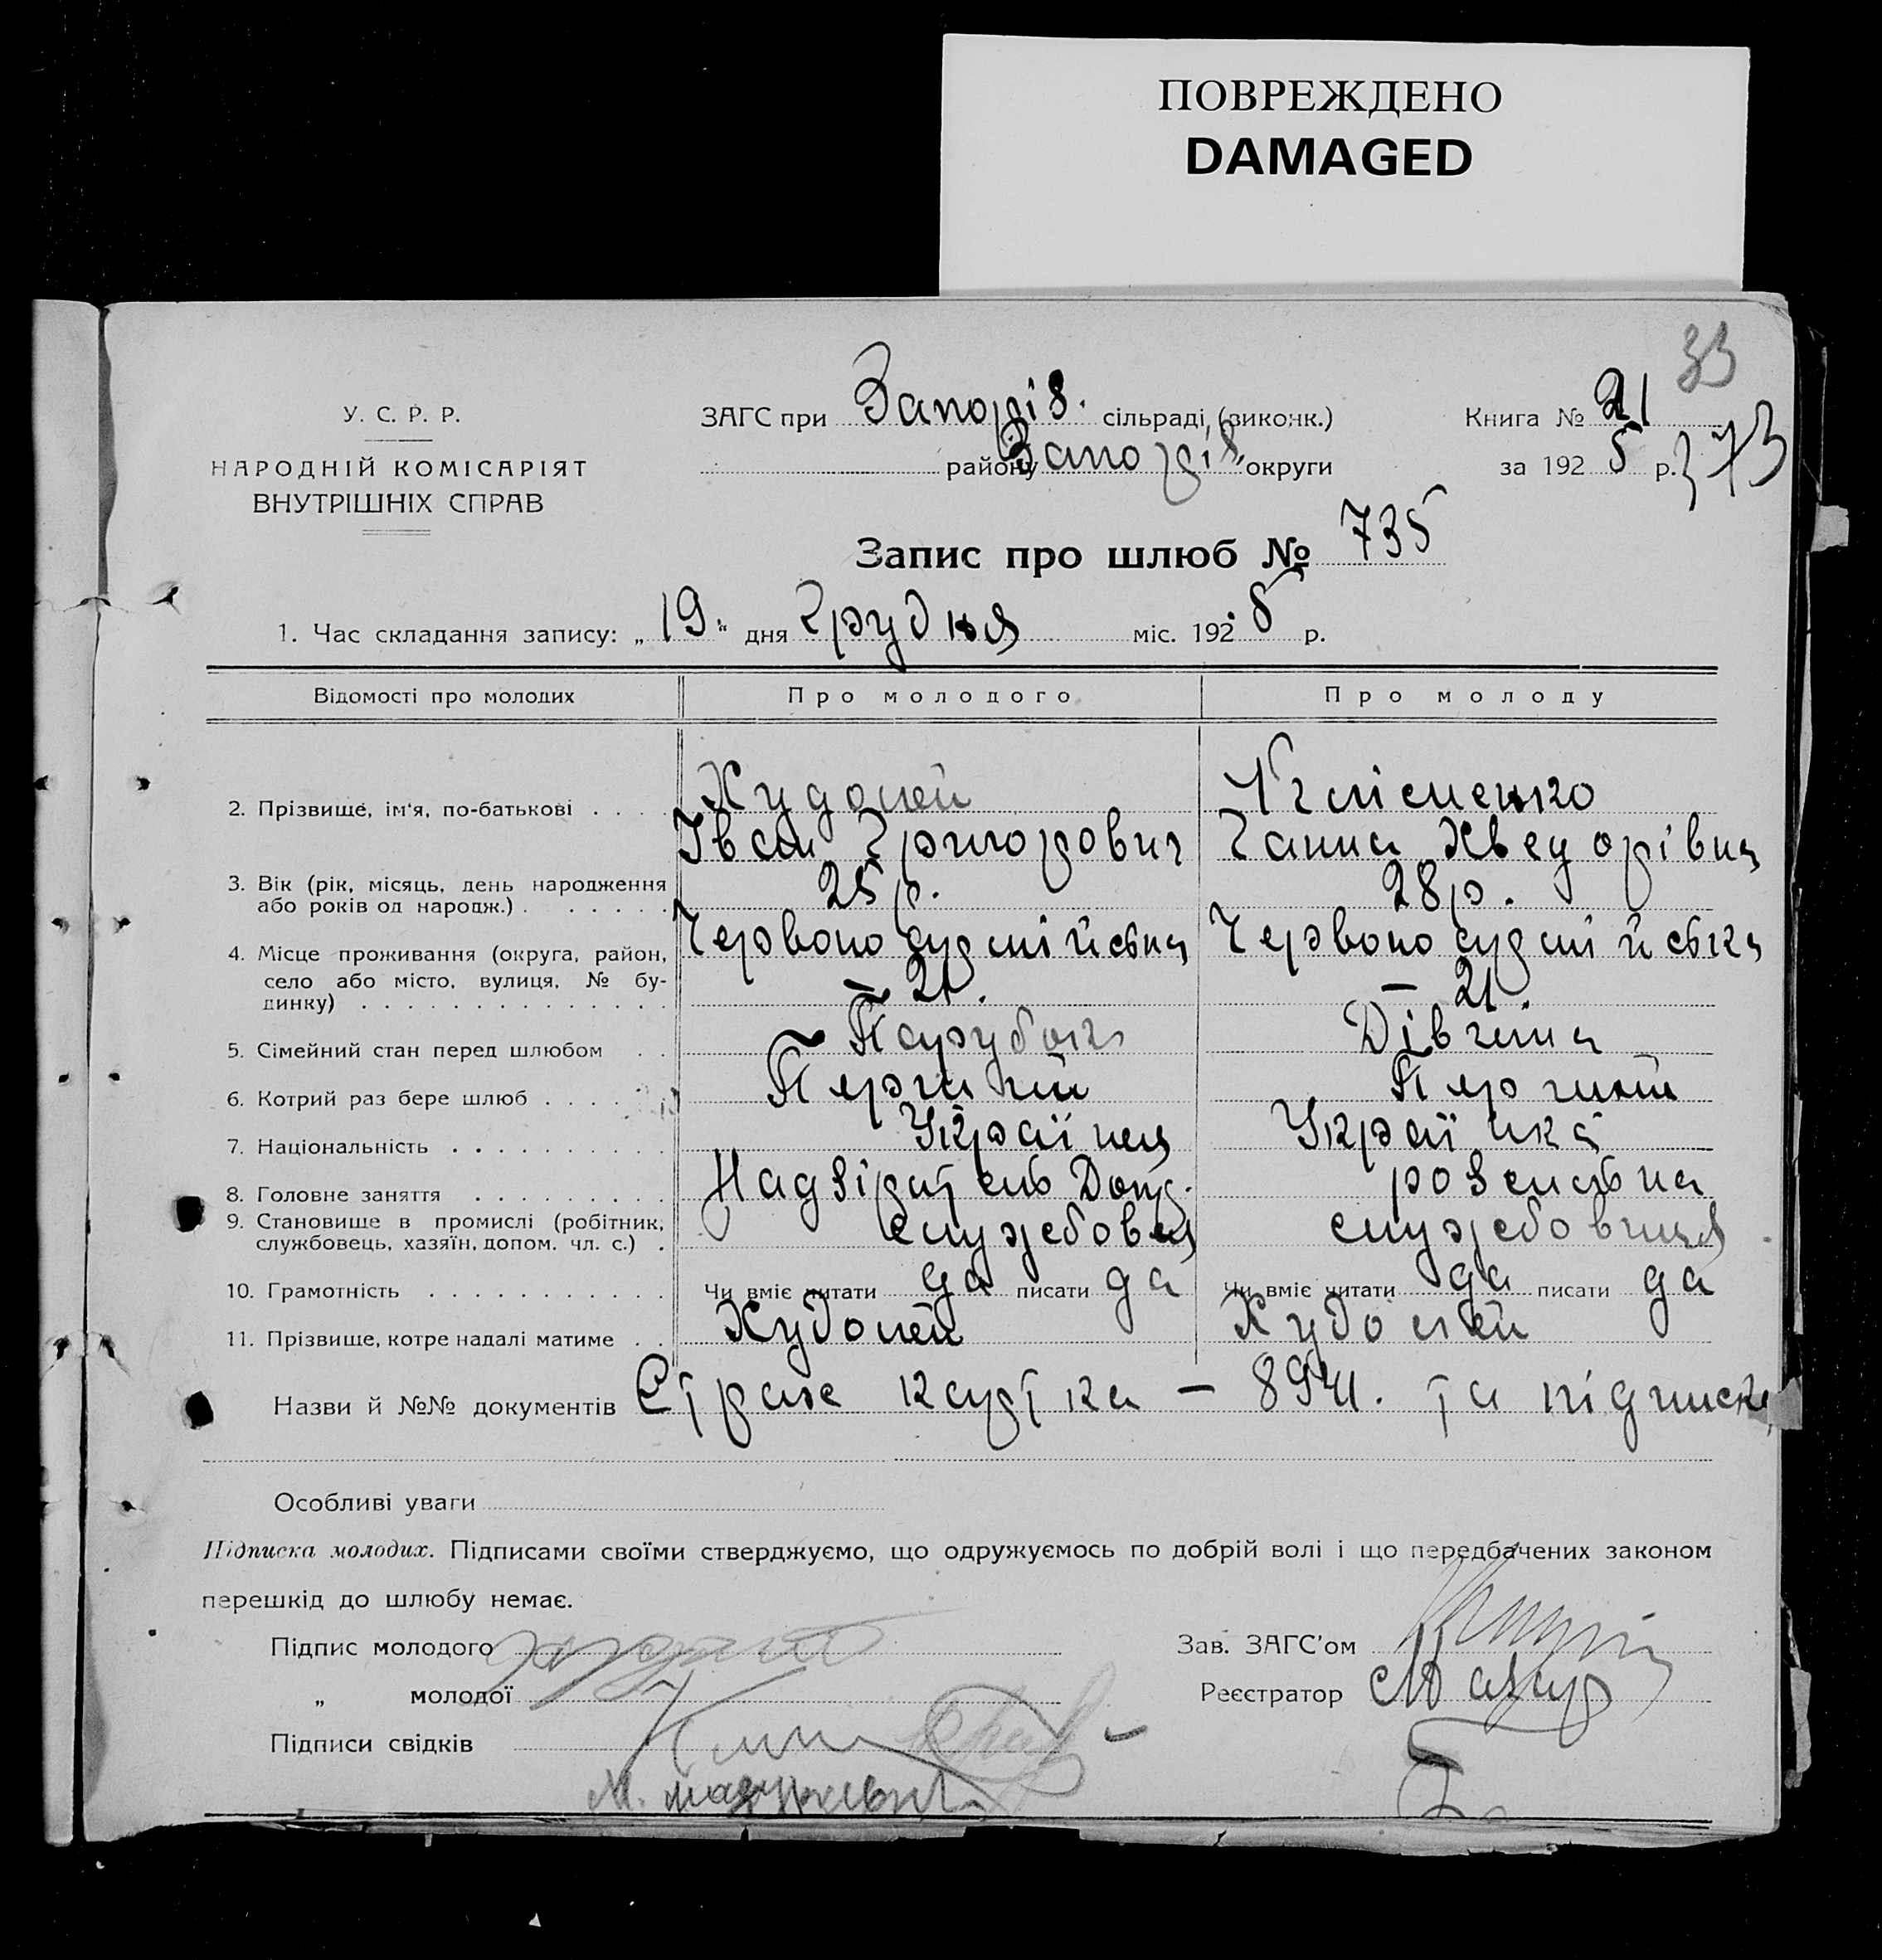 ПОВРЕЖДЕНО
DAMAGED
33
У. С. Р. Р.
НАРОДНІЙ КОМІСАРІЯТ
ВНУТРІШНІХ СПРАВ
ЗАГС при Запоріз. сільраді (виконк.)
району Запоріз. округи
Книга № 21
за 1925 р.
373
Запис про шлюб № 735
1. Час складання запису: „19" дня Грудня міс. 1925 р.
Відомості про молодих Про молодого Про молоду
2. Прізвище, ім'я, по-батькові . . . . Худолей Кліменко
Іван Григорович Ганна Хведорівна
3. Вік (рік, місяць, день народження 25 р. 28 р.
або років од народж.) . . . . . .
4. Місце проживання (округа, район, Червоноармійська Червоноармійська
село або місто, вулиця, № бу- – 21. – 21.
динку) . . . . . . . . . . . . . .
5. Сімейний стан перед шлюбом . . Парубок Дівчина
6. Котрий раз бере шлюб . . . . . Перший Перший
7. Національність . . . . . . . . . . Українец Українка
8. Головне заняття . . . . . . . . . Надзіратель Допр. розсильна
9. Становище в промислі (робітник, службовец службовиця
службовець, хазяїн, допом. чл. с.) .
10. Грамотність . . . . . . . . . . . Чи вміє читати да писати да Чи вміє читати да писати да
11. Прізвище, котре надалі матиме . . Худолей Худолей
Назви й №№ документів Страх картка – 8941. та підписка
Особливі уваги
Підписка молодих. Підписами своїми стверджуємо, що одружуємось по добрій волі і що передбачених законом
перешкід до шлюбу немає.
Підпис молодого
„ молодої
Підписи свідків
Зав. ЗАГС'ом
Реєстратор Мазур